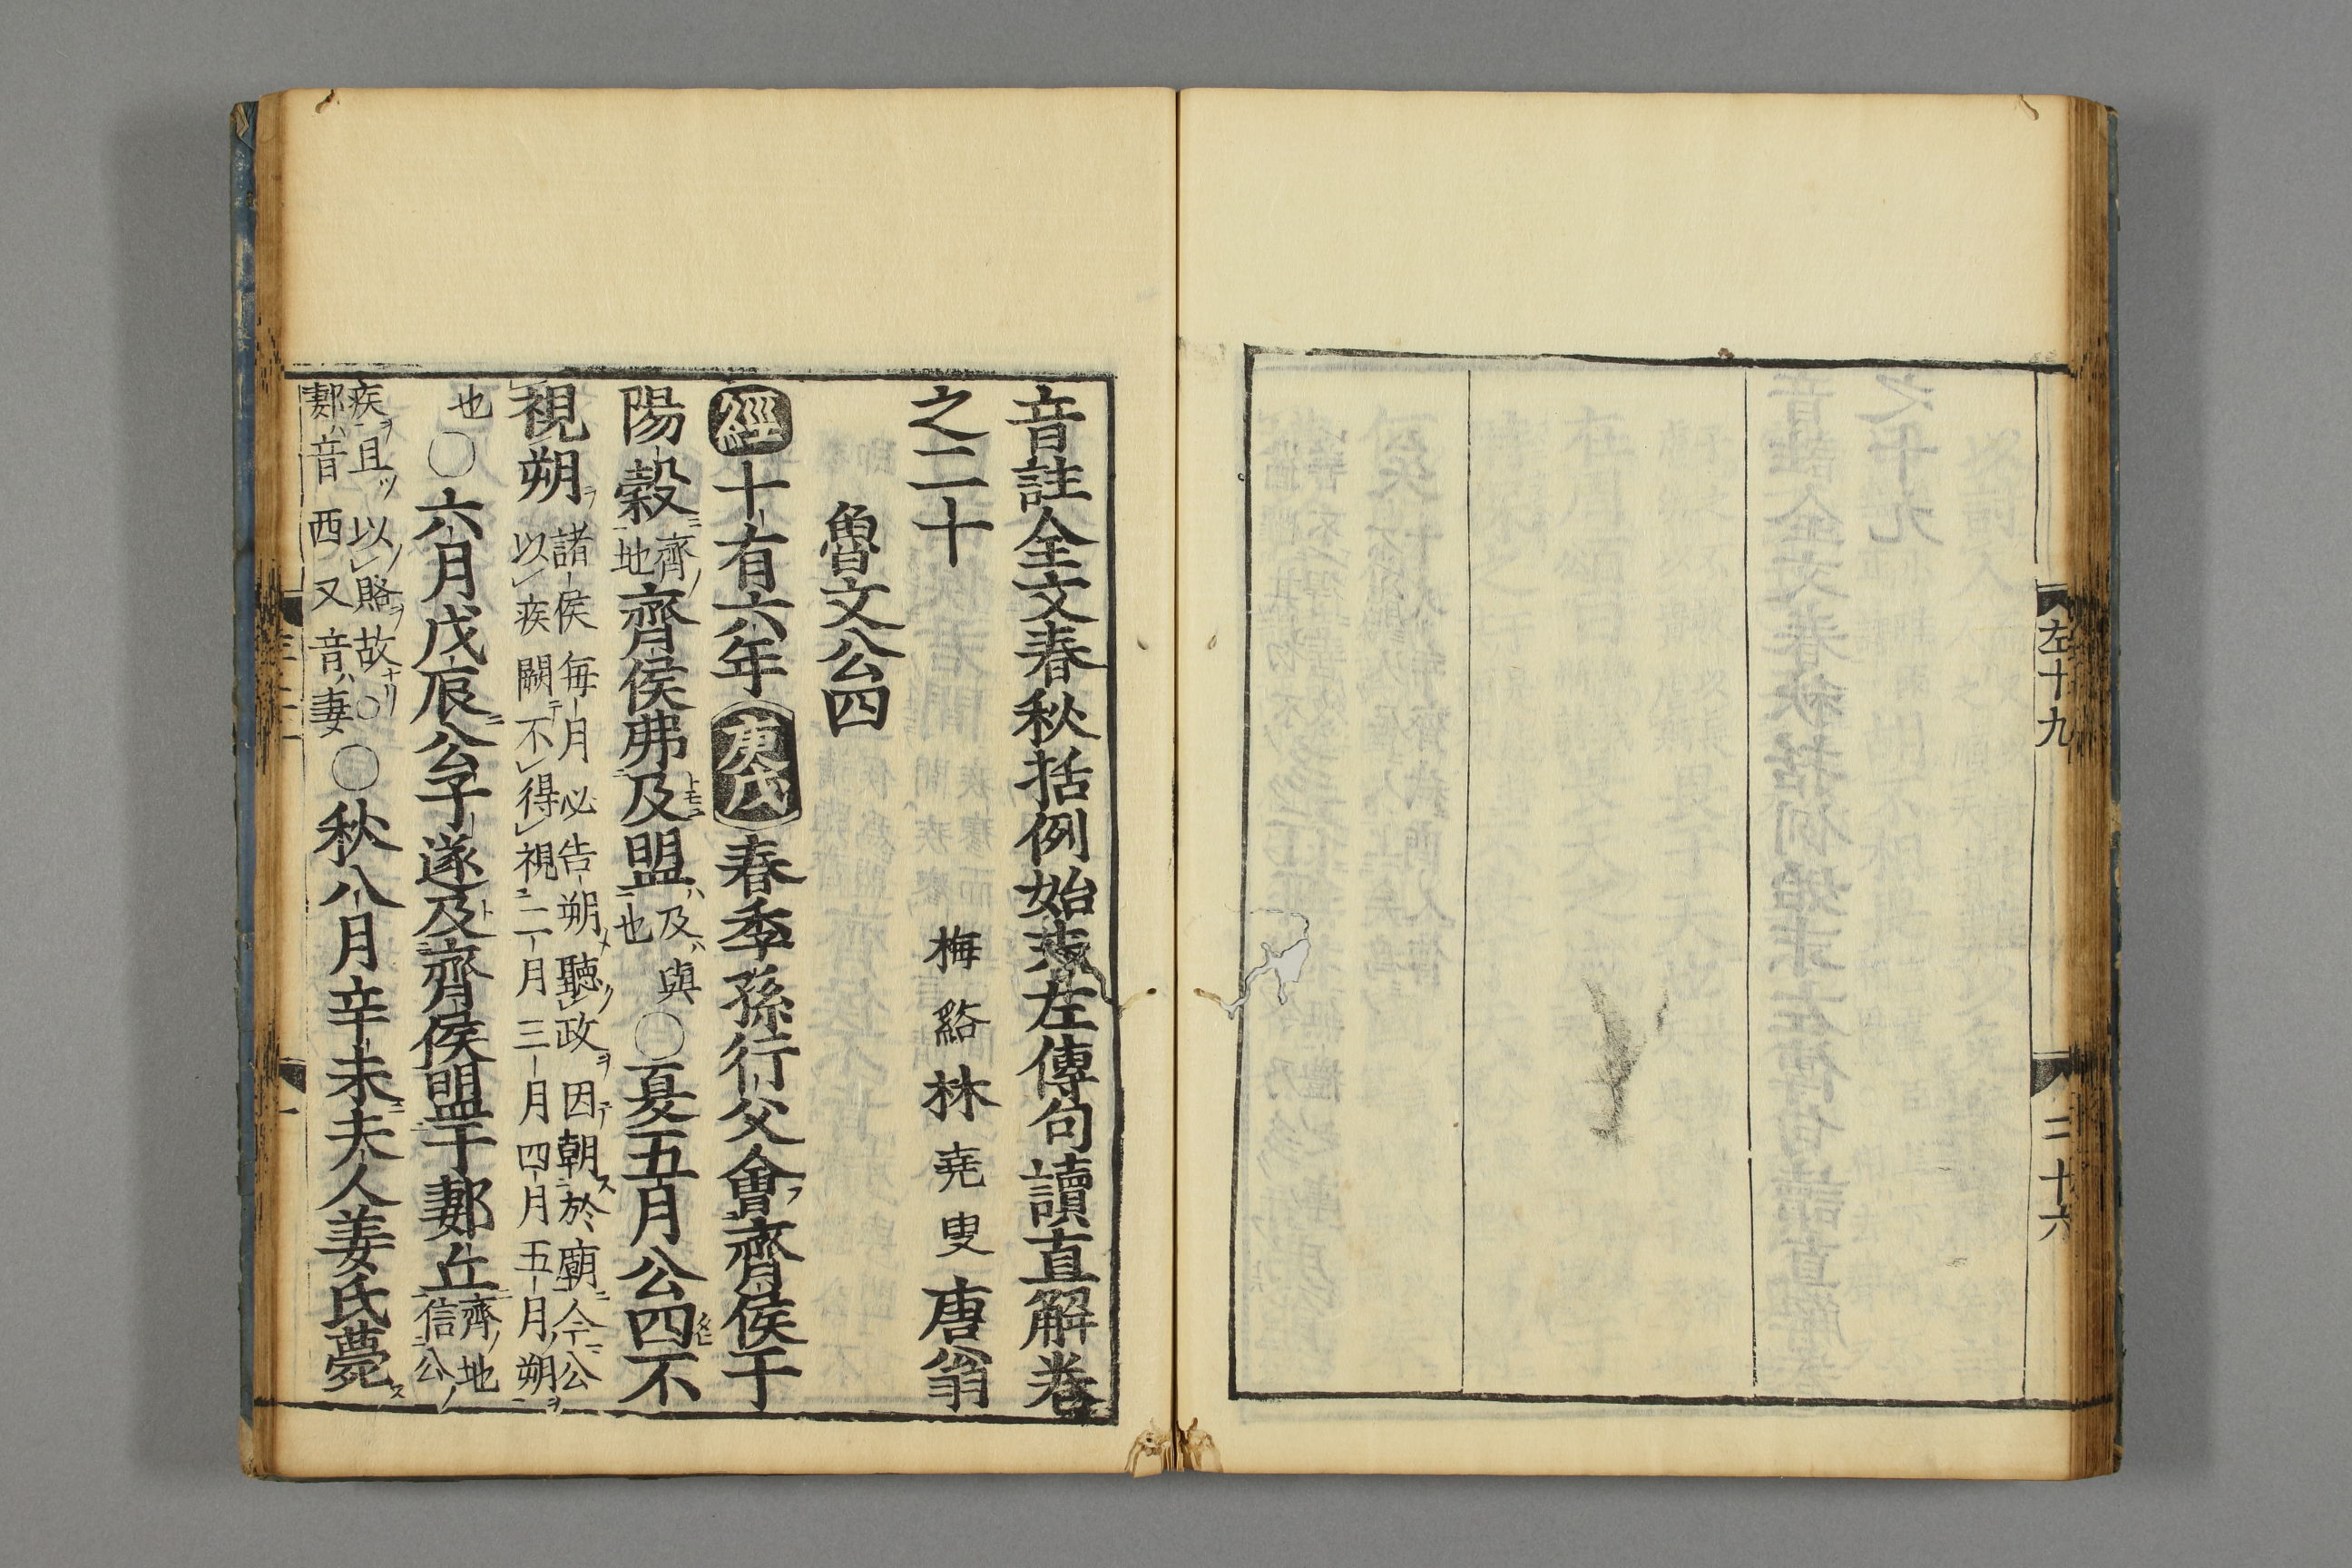 左十九
二十六
音註全文春秋括例始末左傳句讀直解卷
之二十
梅谿林堯叟唐翁
魯文公四
經十有六年庚戌春季孫行父會齊侯于
陽穀齊ノ地齊侯弗及盟及ハ與也○夏五月公四不
視朔諸侯每月必告朔聽政因朝於廟今公以疾闕不得視二月三月四月五月朔
也○六月戊辰公子遂及齊侯盟于郪丘齊ノ地信公
疾且以賂故○郪音西又音妻○秋八月辛未夫人姜氏薨